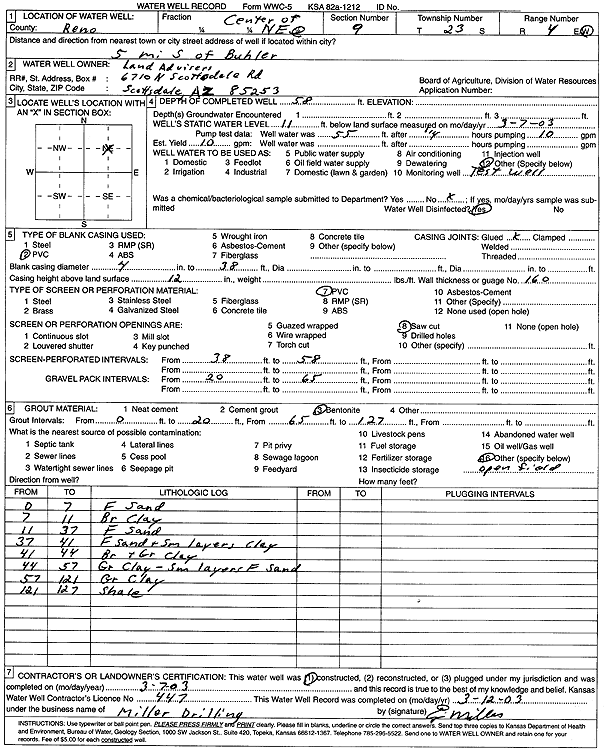 WATER WELL RECORD Form WWC-5 KSA 82a-1212 ID No.
1 LOCATION OF WATER WELL: Fraction Center of Section Number Township Number Range Number
County: Reno ¼ ¼ NE ¼ 9 T 23 S R 4 E W
Distance and direction from nearest town or city street address of well if located within city?
5 mi S of Buhler
2 WATER WELL OWNER: Land Advisers
RR#, St. Address, Box # : 6710 N Scottsdale Rd Board of Agriculture, Division of Water Resources
City, State, ZIP Code : Scottsdale AZ 85253 Application Number:
3 LOCATE WELL'S LOCATION WITH AN "X" IN SECTION BOX:
N
NW NE
W E
SW SE
S
4 DEPTH OF COMPLETED WELL 58 ft. ELEVATION:
Depth(s) Groundwater Encountered 1 ft. 2 ft. 3 ft.
WELL'S STATIC WATER LEVEL 11 ft. below land surface measured on mo/day/yr 3-7-03
Pump test data: Well water was 55 ft. after 14 hours pumping 10 gpm
Est. Yield 10 gpm: Well water was ft. after hours pumping gpm
WELL WATER TO BE USED AS: 5 Public water supply 8 Air conditioning 11 Injection well
1 Domestic 3 Feedlot 6 Oil field water supply 9 Dewatering 12 Other (Specify below)
2 Irrigation 4 Industrial 7 Domestic (lawn & garden) 10 Monitoring well Test well
Was a chemical/bacteriological sample submitted to Department? Yes No X ; If yes, mo/day/yrs sample was submitted Water Well Disinfected? Yes No
5 TYPE OF BLANK CASING USED: 5 Wrought iron 8 Concrete tile CASING JOINTS: Glued X Clamped
1 Steel 3 RMP (SR) 6 Asbestos-Cement 9 Other (specify below) Welded
2 PVC 4 ABS 7 Fiberglass Threaded
Blank casing diameter 4 in. to 38 ft., Dia in. to ft., Dia in. to ft.
Casing height above land surface 12 in., weight lbs./ft. Wall thickness or guage No. 160
TYPE OF SCREEN OR PERFORATION MATERIAL: 7 PVC 10 Asbestos-Cement
1 Steel 3 Stainless Steel 5 Fiberglass 8 RMP (SR) 11 Other (Specify)
2 Brass 4 Galvanized Steel 6 Concrete tile 9 ABS 12 None used (open hole)
SCREEN OR PERFORATION OPENINGS ARE: 5 Guazed wrapped 8 Saw cut 11 None (open hole)
1 Continuous slot 3 Mill slot 6 Wire wrapped 9 Drilled holes
2 Louvered shutter 4 Key punched 7 Torch cut 10 Other (specify) ft.
SCREEN-PERFORATED INTERVALS: From 38 ft. to 58 ft., From ft. to ft.
From ft. to ft., From ft. to ft.
GRAVEL PACK INTERVALS: From 20 ft. to 65 ft., From ft. to ft.
From ft. to ft., From ft. to ft.
6 GROUT MATERIAL: 1 Neat cement 2 Cement grout 3 Bentonite 4 Other
Grout Intervals: From 0 ft. to 20 ft., From 65 ft. to 127 ft., From ft. to ft.
What is the nearest source of possible contamination: 10 Livestock pens 14 Abandoned water well
1 Septic tank 4 Lateral lines 7 Pit privy 11 Fuel storage 15 Oil well/Gas well
2 Sewer lines 5 Cess pool 8 Sewage lagoon 12 Fertilizer storage 16 Other (specify below)
3 Watertight sewer lines 6 Seepage pit 9 Feedyard 13 Insecticide storage open field
Direction from well? How many feet?
FROM TO LITHOLOGIC LOG FROM TO PLUGGING INTERVALS
0 7 F Sand
7 11 Br Clay
11 37 F Sand
37 41 F Sand + Sm layers Clay
41 44 Br + Gr Clay
44 57 Gr Clay - Sm layers F Sand
57 121 Gr Clay
121 127 Shale
7 CONTRACTOR'S OR LANDOWNER'S CERTIFICATION: This water well was (1) constructed, (2) reconstructed, or (3) plugged under my jurisdiction and was
completed on (mo/day/year) 3-7-03 and this record is true to the best of my knowledge and belief. Kansas
Water Well Contractor's Licence No 447 This Water Well Record was completed on (mo/day/yr) 3-12-03
under the business name of Miller Drilling by (signature)
INSTRUCTIONS: Use typewriter or ball point pen. PLEASE PRESS FIRMLY and PRINT clearly. Please fill in blanks, underline or circle the correct answers. Send top three copies to Kansas Department of Health
and Environment, Bureau of Water, Geology Section, 1000 SW Jackson St., Suite 420, Topeka, Kansas 66612-1367. Telephone 785-296-5522. Send one to WATER WELL OWNER and retain one for
your records. Fee of $5.00 for each constructed well.